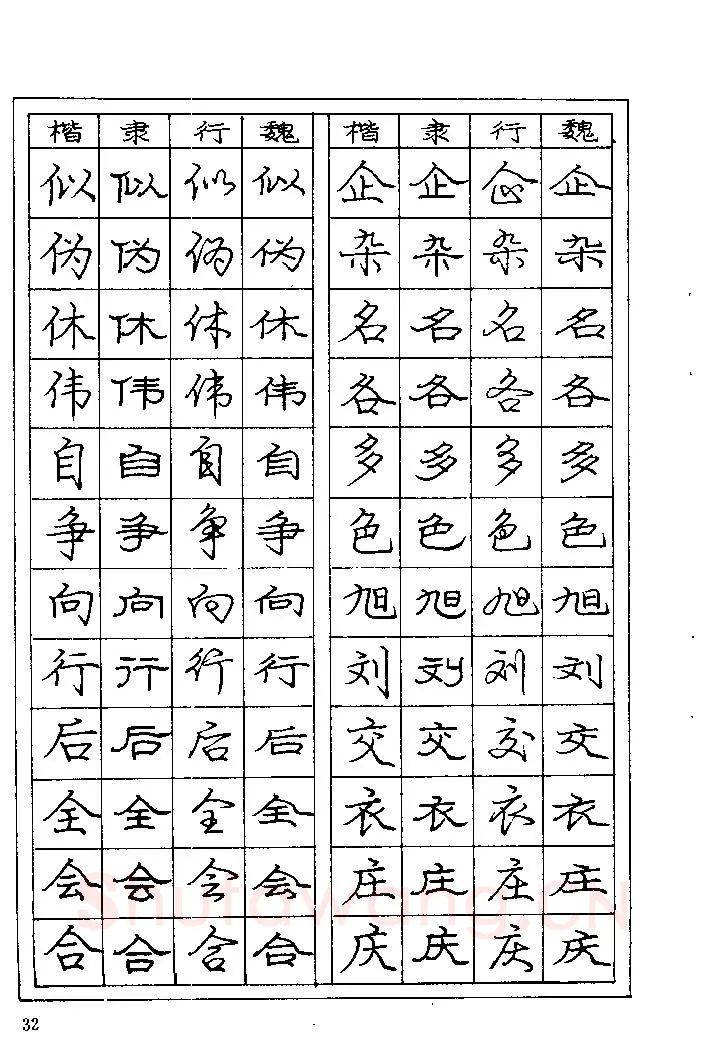 楷 隶 行 魏 楷 隶 行 魏
似 似 似 似 企 企 企 企
伪 伪 伪 伪 杂 杂 杂 杂
休 休 休 休 名 名 名 名
伟 伟 伟 伟 各 各 各 各
自 自 自 自 多 多 多 多
争 争 争 争 色 色 色 色
向 向 向 向 旭 旭 旭 旭
行 行 行 行 刘 刘 刘 刘
后 后 后 后 交 交 交 交
全 全 全 全 衣 衣 衣 衣
会 会 会 会 庄 庄 庄 庄
Shufawang.CN
合 合 合 合 庆 庆 庆 庆
32